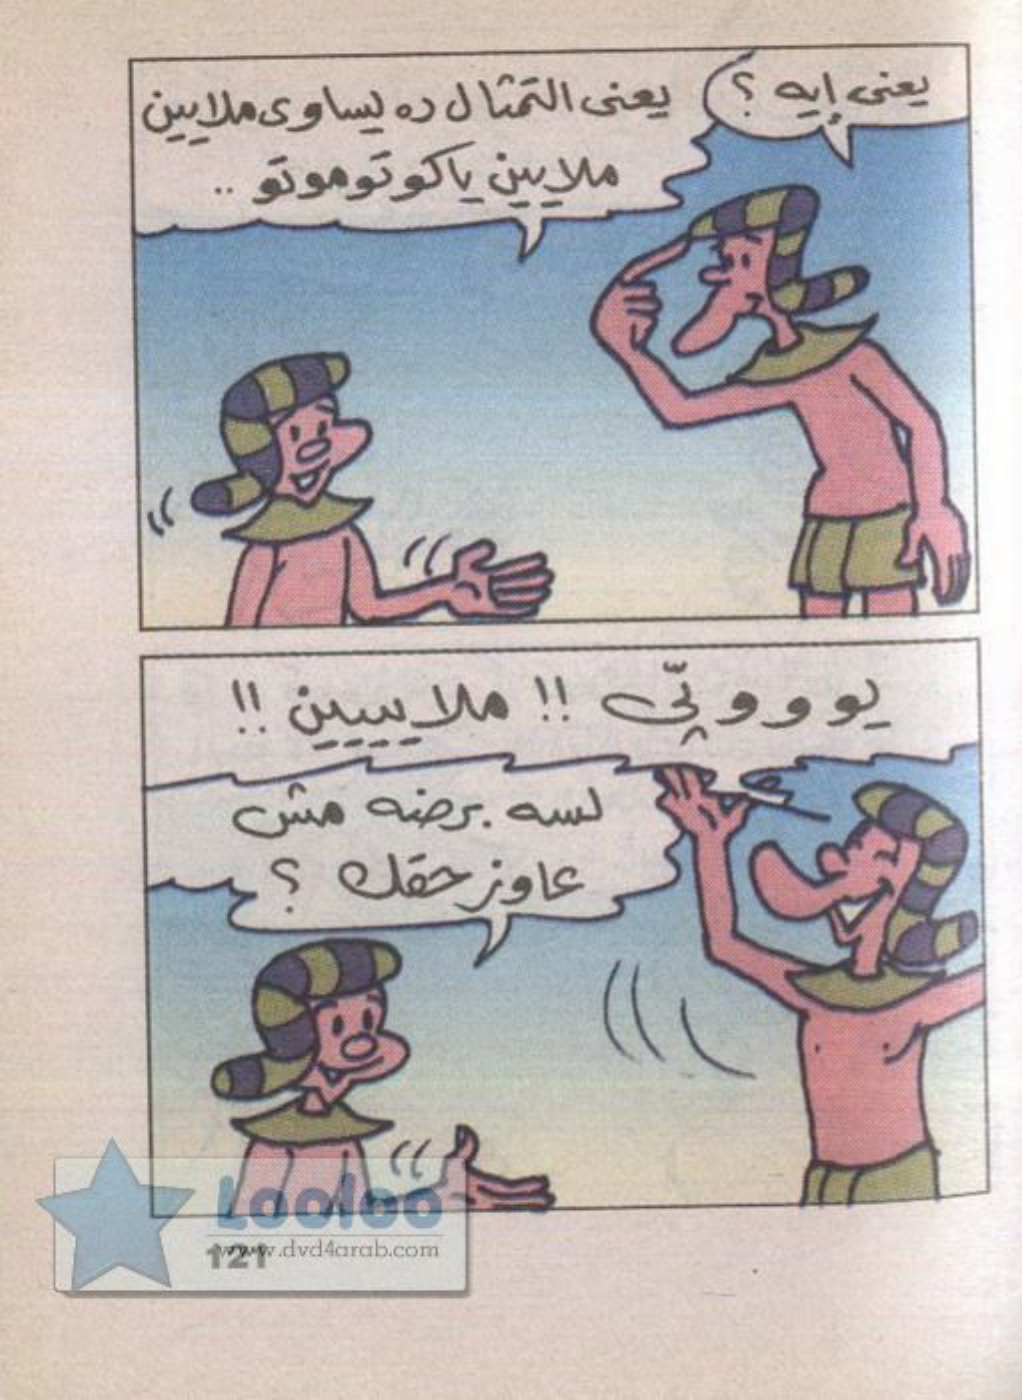 يعنى إيه ؟
يعنى التمثال ده يساوى ملايين
ملايين ياكوتوموتو ..
يوووپّى !! ملايييين !!
لسه برضه مش
عاوز حقك ؟
Looloo
www.dvd4arab.com
121